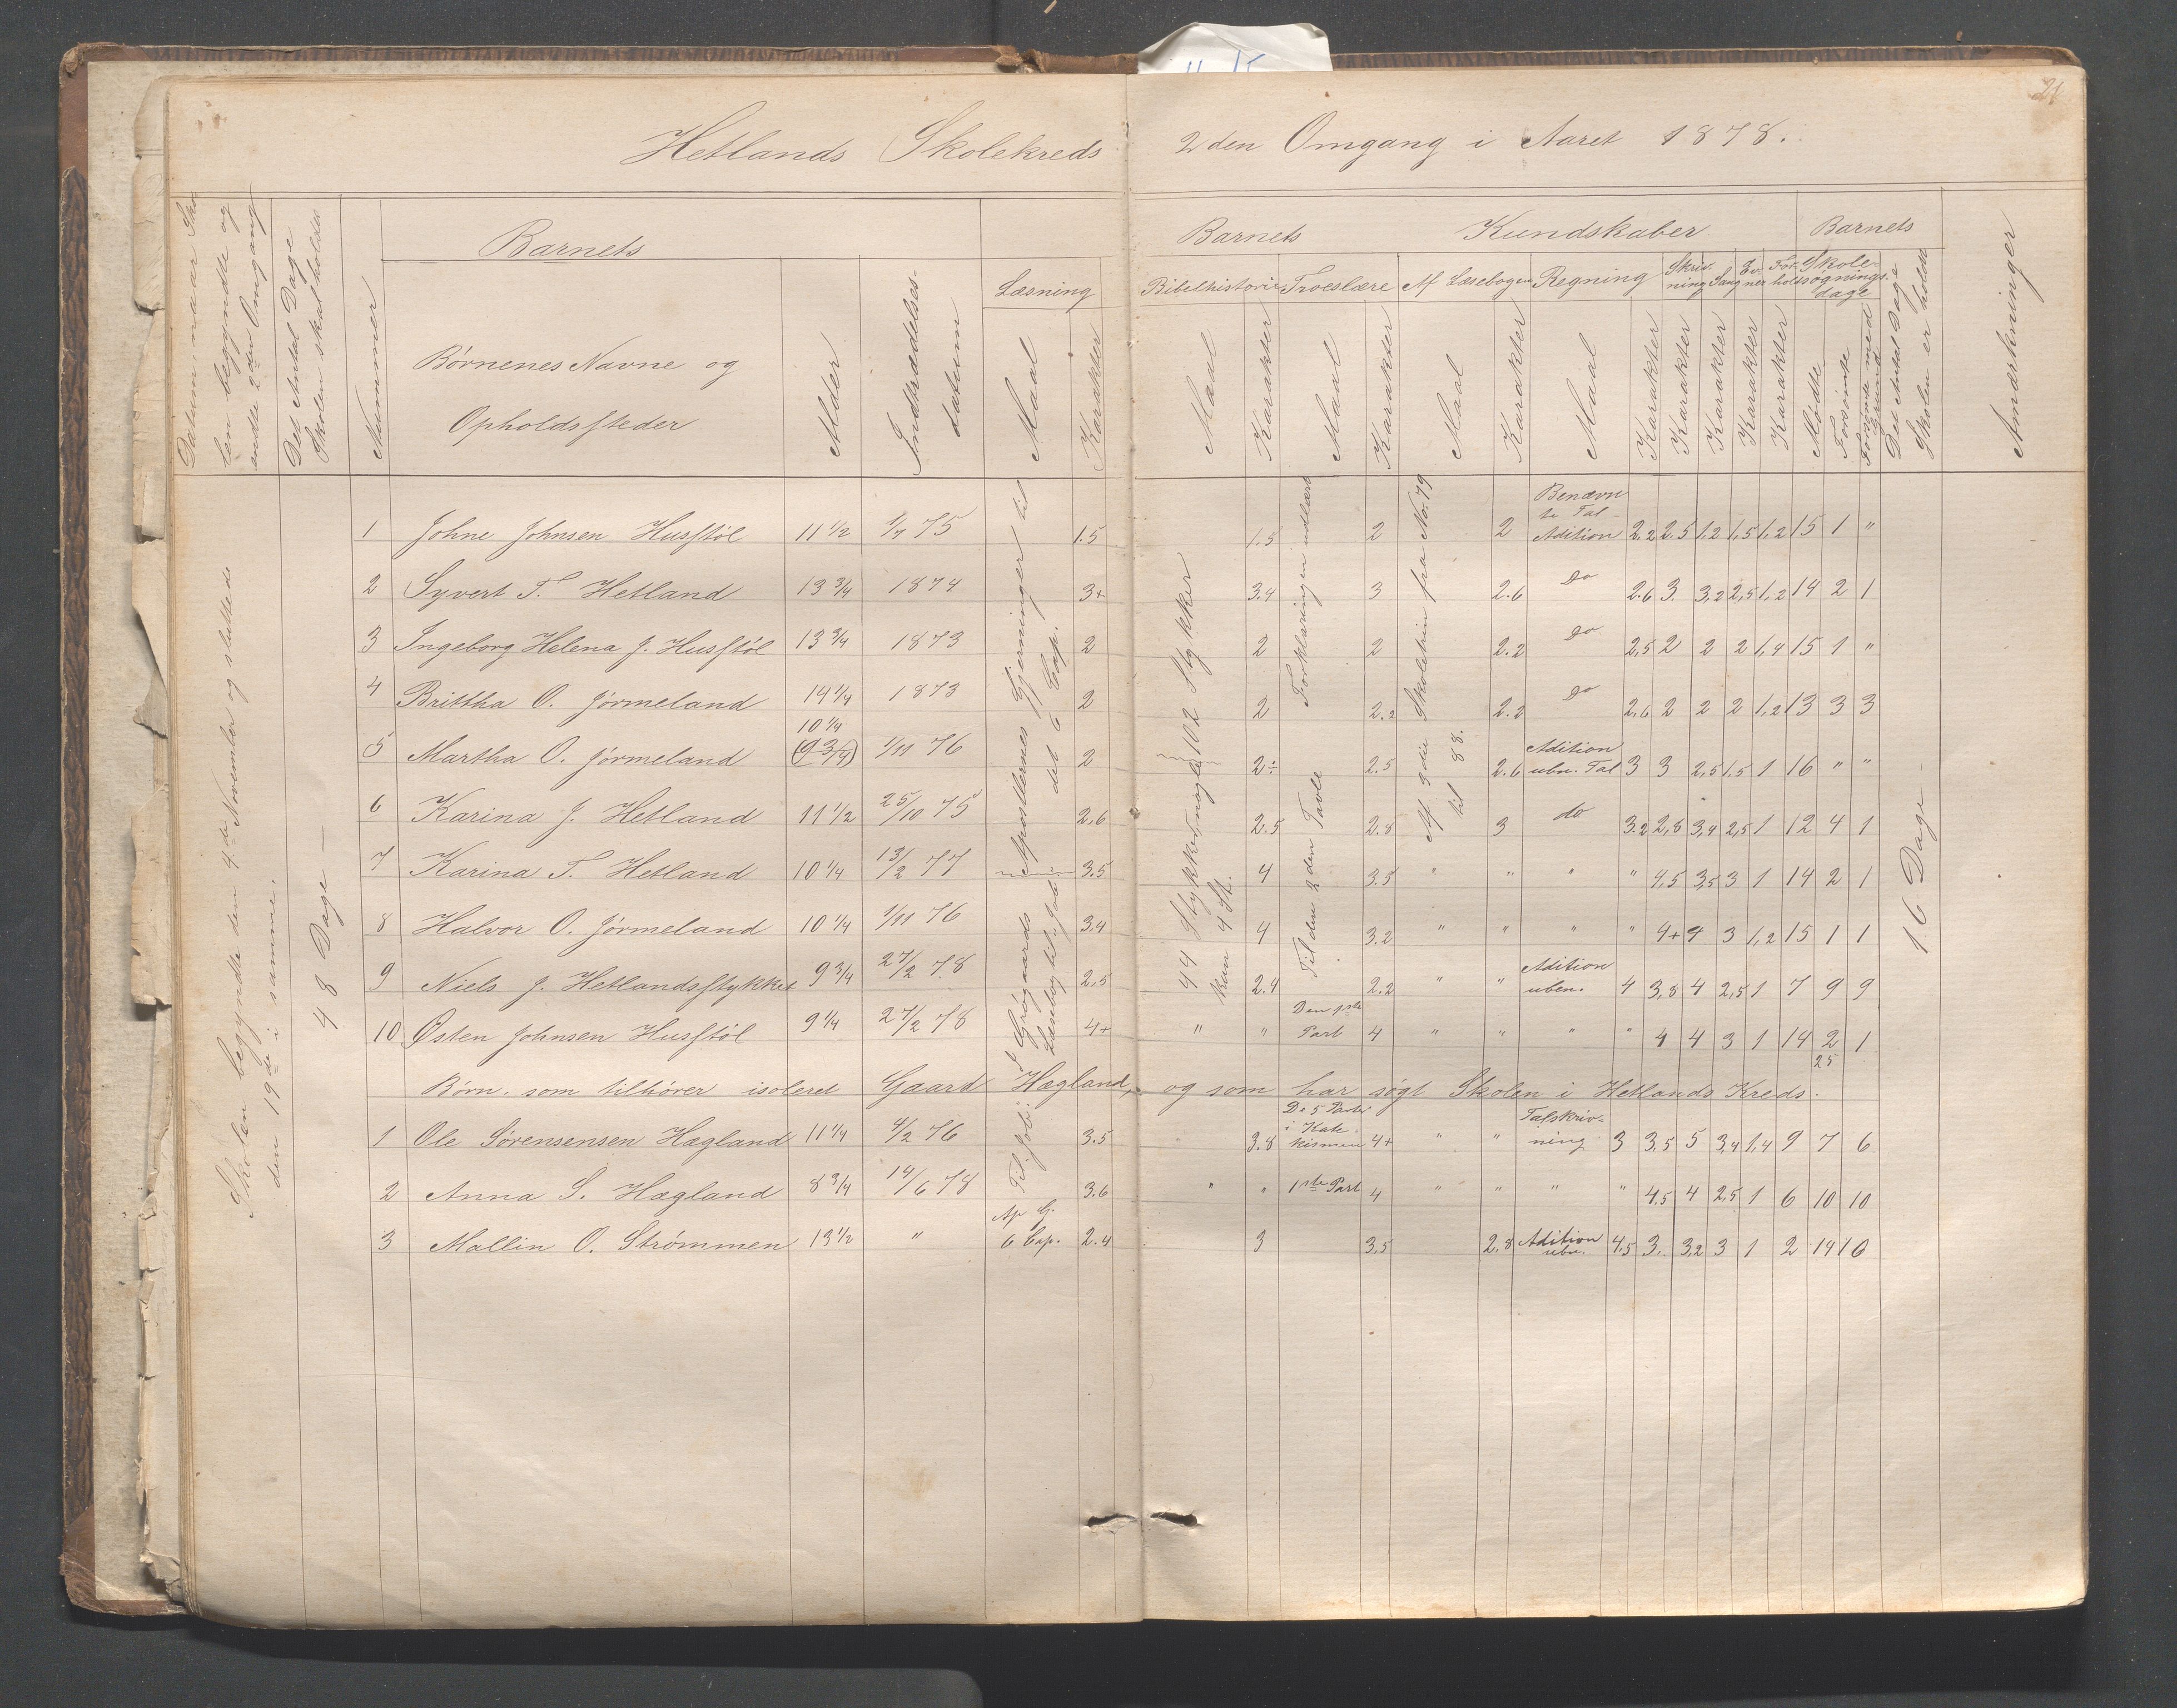 21
Hetlands Skolekreds 2den Omgang i Aaret 1878.
Datum naar Sko
len begyndte og
endte 2den Omgang
Det Antal Dage
Skolen skal holdes
Nummer
Barnets
Børnenes Navne og
Opholdssteder
Alder
Indtrædelses-
datum
Læsning
Maal
Karakter
Barnets Kundskaber
Bibelhistorie
Maal
Karakter
Troeslære
Maal
Karakter
Af Læsebogen
Maal
Karakter
Regning
Maal
Karakter
Skriv-
ning
Karakter
Sang
Karakter
Ev-
ner
Karakter
For-
hold
Karakter
Barnets
Skole-
søgnings-
dage
Mødte
Forsømte
Forsømte med
Grund
Det Antal Dage
Skolen er holdt
Anmærkninger
Skolen begyndte den 4de November og sluttede
den 19de i samme.
48 Dage —
Apostlernes Gjerninger til
det 6 Cap.
Læsebog til Job
44 Stykker
kun 4 St.
102 Stykker
Forklaringen udlært
Til den 2den Tavle
Af 3die Skoletrin fra No. 79
til 88.
16 Dage —
1 Johne Johnsen Husstøl 11 1/2 1/7 75 1.5 1.5 2 2 Benævn
te Tal-
Adition 2.2 2.5 1.2 1,5 1,2 15 1 "
2 Syvert T. Hetland 13 3/4 1874 3+ 3.4 3 2.6 do 2.6 3. 3,2 2,5 1,2 14 2 1
3 Ingeborg Helena J. Husstøl 13 3/4 1873 2 2 2 2.2 do 2,5 2 2 2 1,4 15 1 "
4 Brittha O. Jørmeland 14 1/4 1873 2 2 2.2 2.2 do 2,6 2 2 2 1,2 13 3 3
10 1/4
5 Martha O. Jørmeland (9 3/4) 1/11 76 2 2÷ 2.5 2.6 Adition
ubn. Tal 3 3 2,5 1.5 1 16 " "
6 Karina J. Hetland 11 1/2 25/10 75 2,6 2.5 2.8 3 do 3.2 2,8 3,4 2,5 1 12 4 1
7 Karina T. Hetland 10 1/4 13/2 77 3.5 4 3.5 " " " " 4,5 3,5 3 1 14 2 1
8 Halvor O. Jørmeland 10 1/4 1/11 76 3.4 4 3.2 " " " " 4+ 4 3 1,2 15 1 1
9 Niels J. Hetlandsstykket 9 3/4 27/2 78 2,5 2.4 2.2 " " Adition
uben. 4 3,8 4 2,5 1 7 9 9
10 Østen Johnsen Husstøl 9 1/4 27/2 78 4+ " " Den 1ste
Part 4 " " " " 4 4 3 1 14 2 1
25
Børn som tilhører isoleret Gaard Hægland, og som har søgt Skolen i Hetlands Kreds.
1 Ole Sørensensen Hægland 11 1/4 4/2 76 Til Job. 3.5 " 3.8 De 5 Parter
i Kate-
kismen 4+ " " Talskriv-
ning 3 3,5 5 3,4 1,4 9 7 6
2 Anna S. Hægland 8 3/4 14/6 78 3.6 " " 1ste Part 4 " " " " 4.5 4 2,5 1 6 10 10
3 Mallin O. Strømmen 13 1/2 " Ap G.
6 Cap. 2.4 3 3,5 2,8 Adition
ubn. 4,5 3. 3,2 3 1 2 14 10